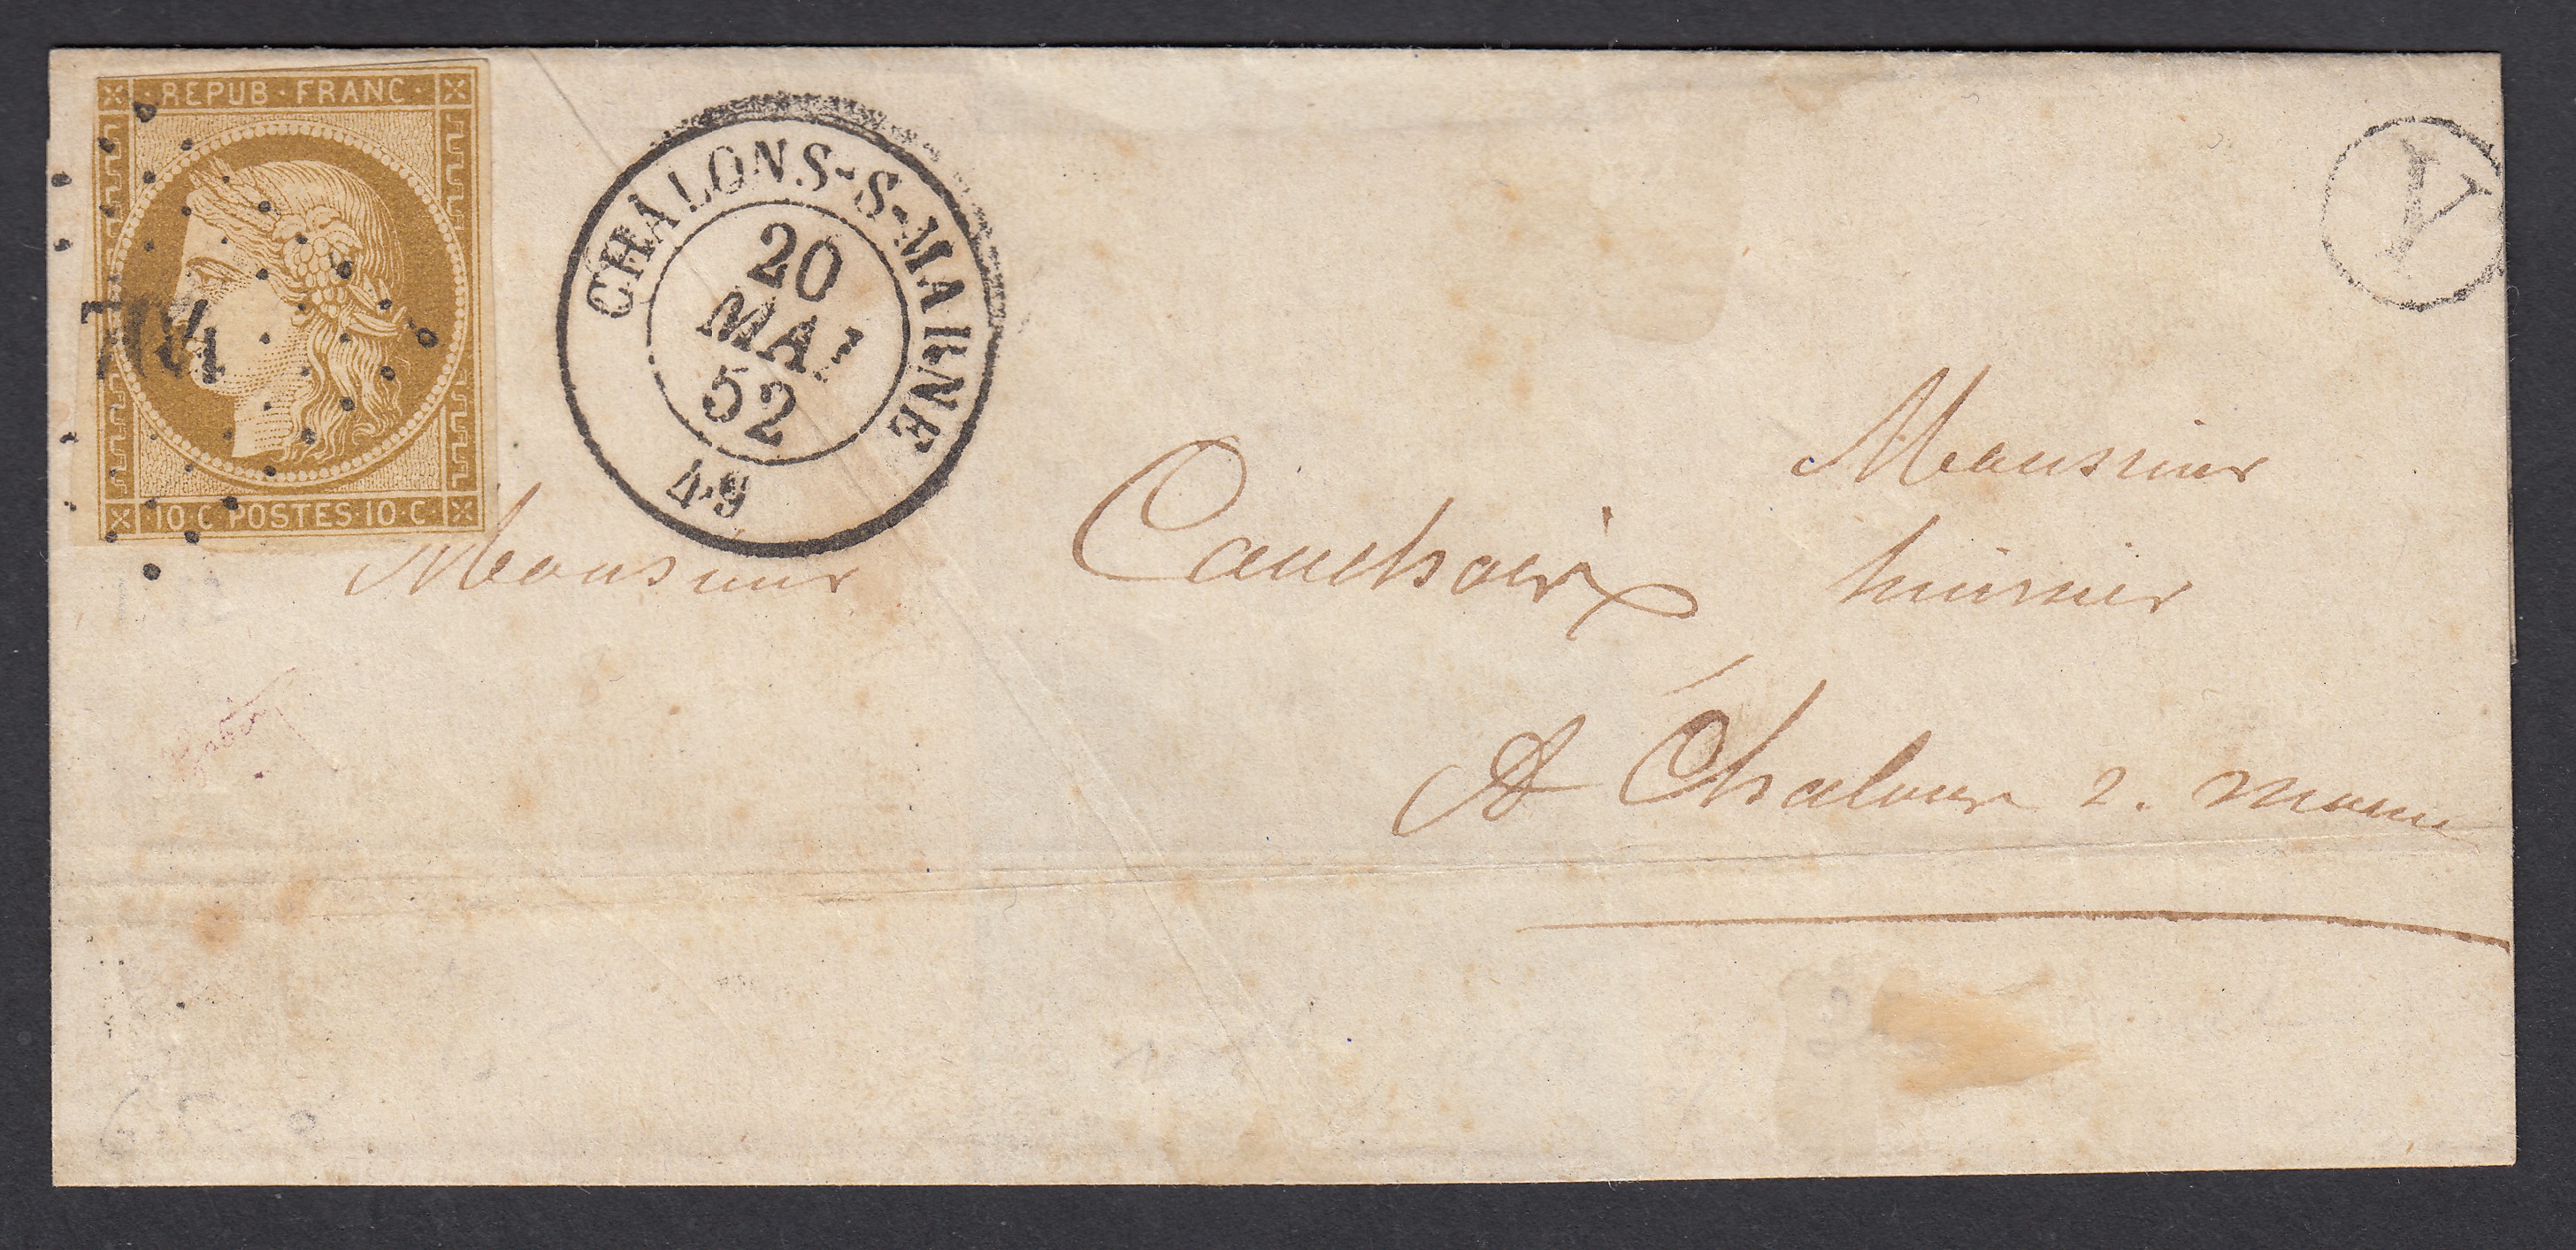 REPUB · FRANC ·
704
10 · C · POSTES · 10 · C ·
CHALONS-S-MARNE
20
MAI
52
49
Y
Monsieur
Monsieur Cauchoix huissier
A Chalons s. Marne